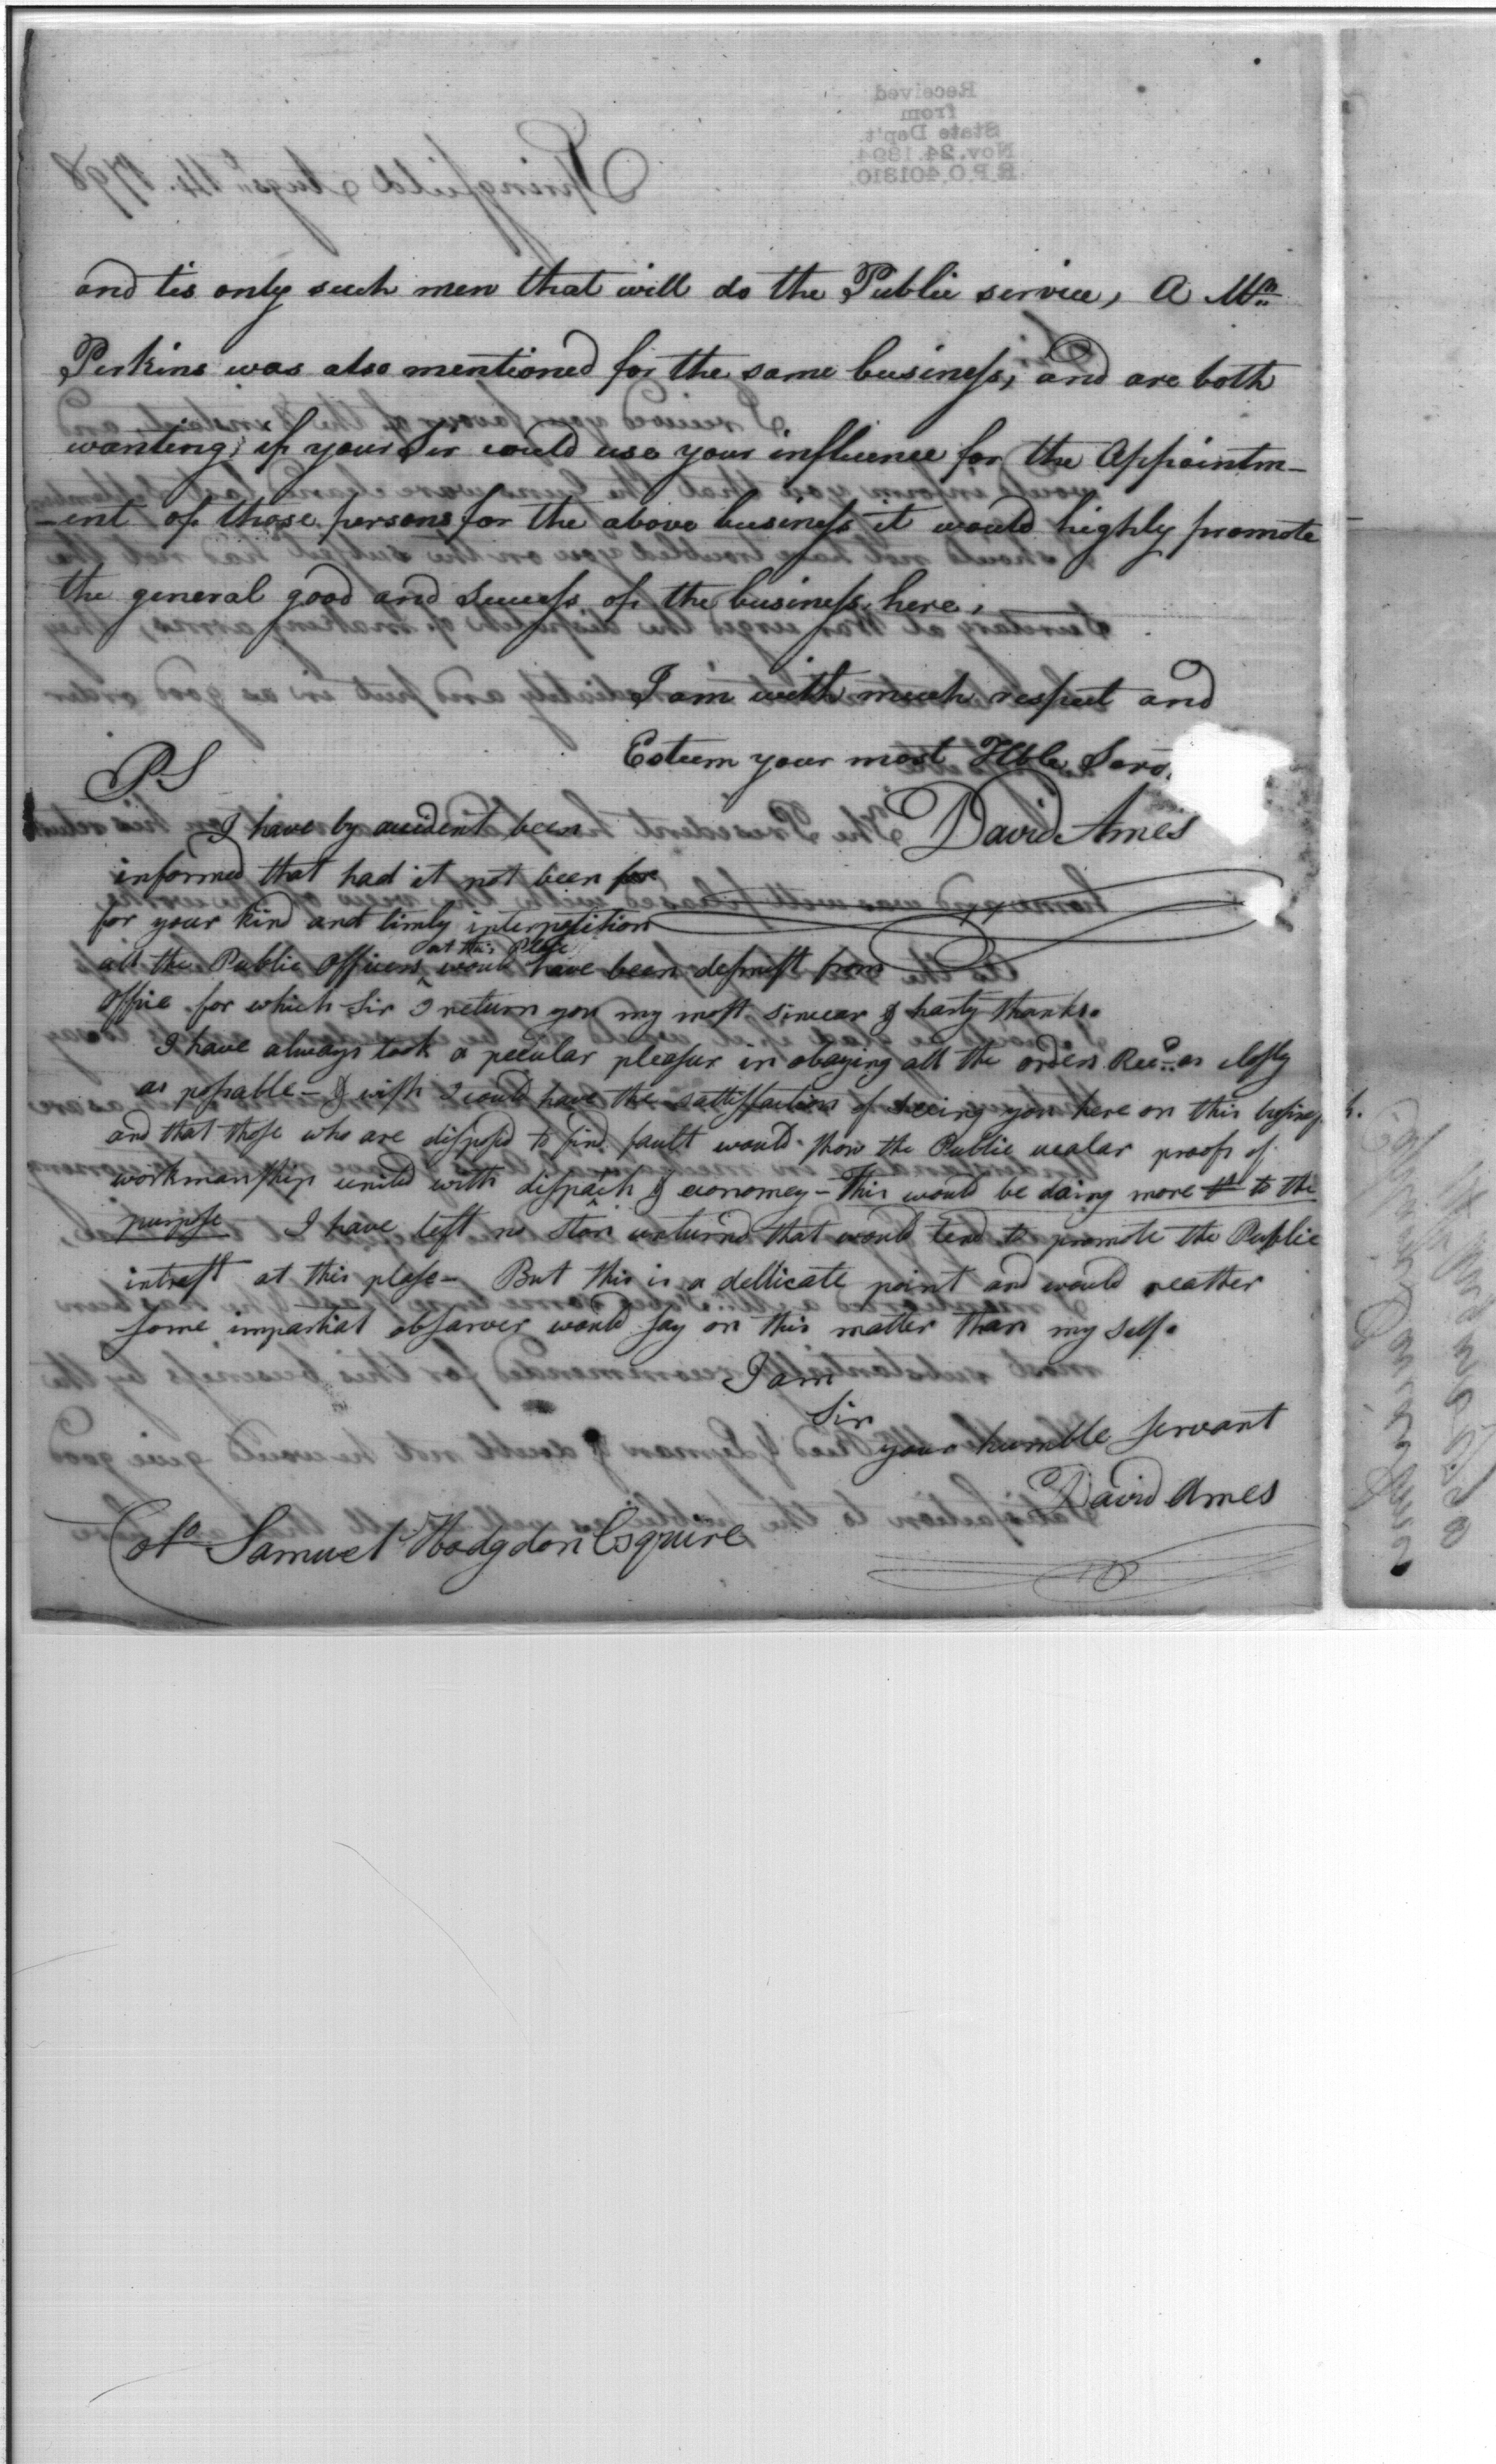 and tis only such men that will do the Public service, A Mr.
Perkins was also mentioned for the same business, and are both
wanting; if your Sir could use your influence for the Appointm-
-ent of those persons for the above business it would highly promote
the general good and Success of the business here,
I am with much respect and
Esteem your most Hble Serv.
David Ames
P.S
I have by accident been
informed that had it not been for
for your kind and timly interpotition
all the Public Officers at this Place would have been desmist from
Office for which Sir I return you my most sincear & harty thanks.
I have always took a pecular pleasur in obaying all the orders Recd. as closly
as possable - & wish I could have the sattisfaction of seeing you here on this busines
and that those who are disposd to find fault would show the Public proofs of
workmanship united with dispatch & economey - This would be doing more to the
purpose - I have left no Ston unturnd that would tend to promote the Public
intrest at this plase - But this is a dellicate point and would reather
some impartial obsarver would say on this matter than my self.
I am
Sir
your humble servant
David Ames
Colo. Samuel Hodgdon Esquire